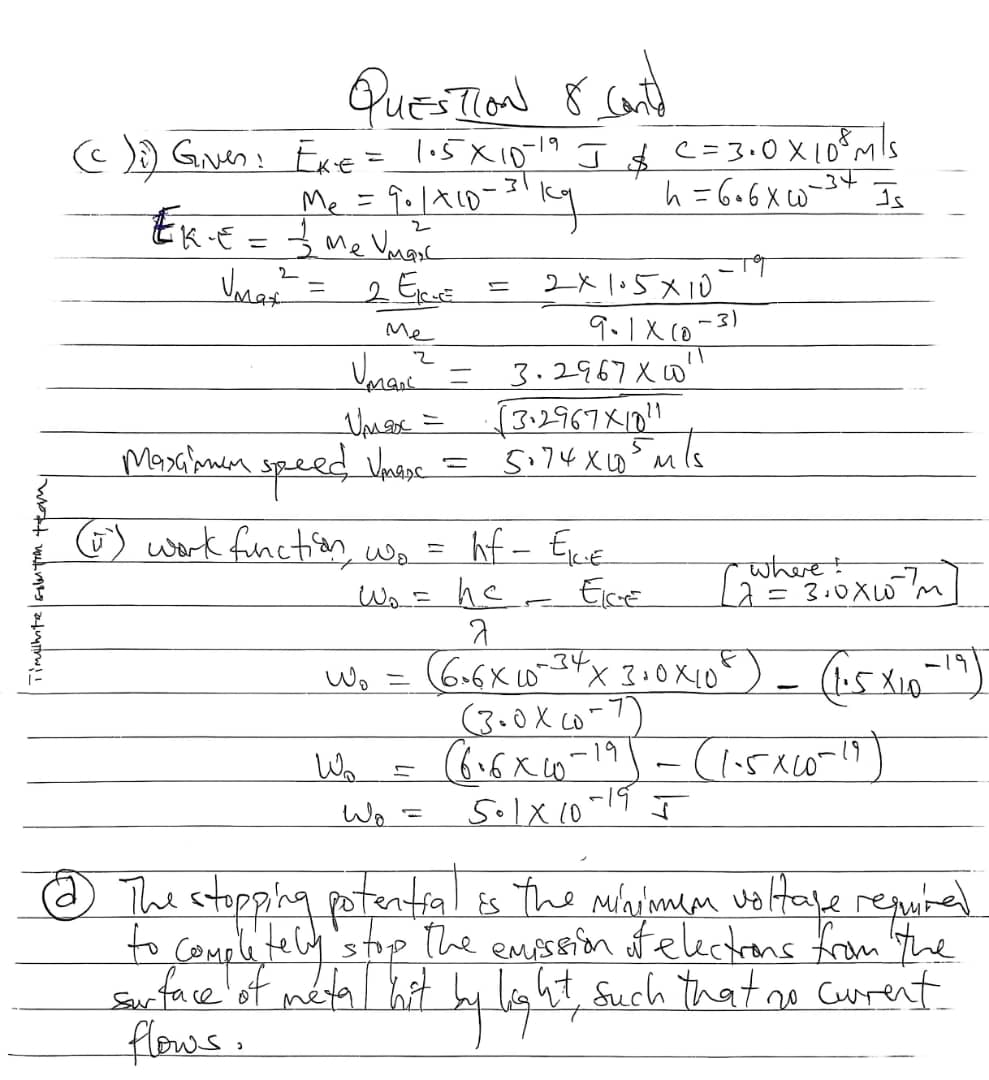 QUESTION 8 Contd
(c) i) Given: EK.E = 1.5 X 10^-19 J & C = 3.0 X 10^8 m/s
Me = 9.1 X 10^-31 kg h = 6.6 X 10^-34 Js
EK.E = 1/2 Me Vmax^2
Vmax^2 = 2 EK.E / Me = 2 X 1.5 X 10^-19 / 9.1 X 10^-31
Vmax^2 = 3.2967 X 10^11
Vmax = √3.2967 X 10^11
Maximum speed, Vmax = 5.74 X 10^5 m/s
(ii) work function, Wo = hf - EK.E
Wo = hc / λ - EK.E [where: λ = 3.0 X 10^-7 m]
Wo = (6.6 X 10^-34 X 3.0 X 10^8) / (3.0 X 10^-7) - (1.5 X 10^-19)
Wo = (6.6 X 10^-19) - (1.5 X 10^-19)
Wo = 5.1 X 10^-19 J
(d) The stopping potential is the minimum voltage required
to completely stop the emission of electrons from the
surface of metal hit by light, such that no current
flows.
solution team